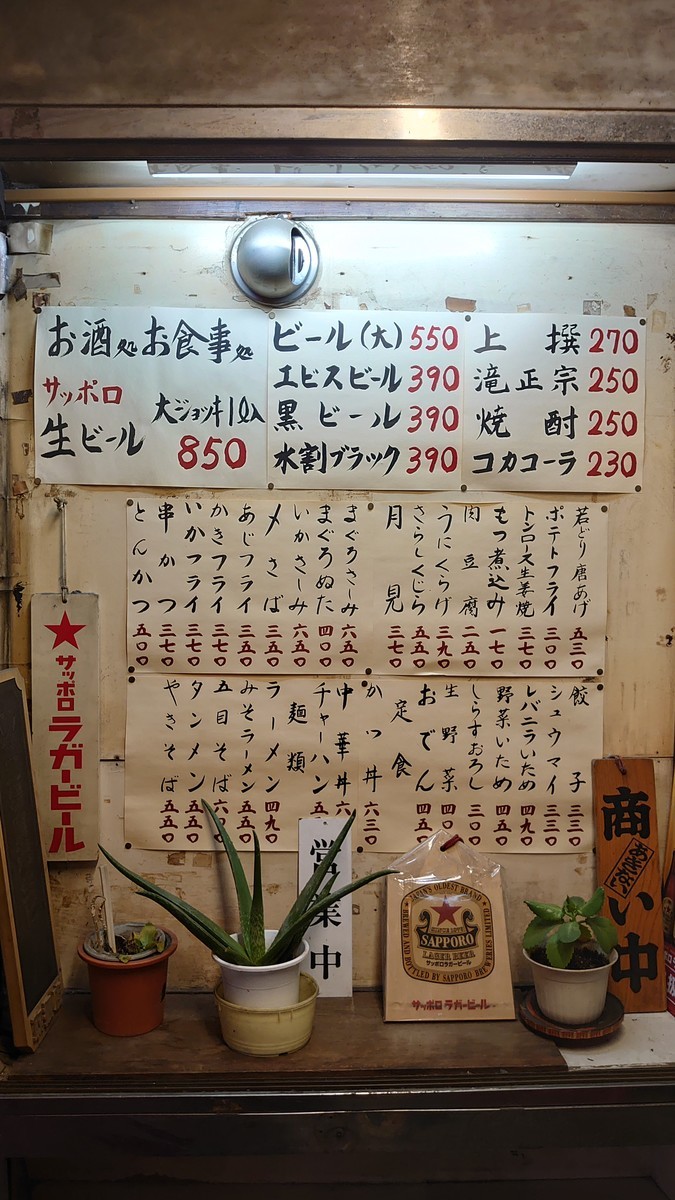 お酒処お食事処
サッポロ
生ビール
大ジョッキ1ℓ入
850
ビール(大)550
エビスビール390
黒ビール390
水割ブラック390
上撰270
滝正宗250
焼酎250
コカコーラ230
若どり唐あげ 五三〇
ポテトフライ 三〇〇
トンロース生姜焼 三七〇
もつ煮込み 一七〇
肉豆腐 二五〇
うにくらげ 三九〇
さらしくじら 五五〇
月見 三七〇
まぐろさしみ 六五〇
まぐろぬた 四〇〇
いかさしみ 六五〇
〆さば 三五〇
あじフライ 三五〇
かきフライ 三七〇
いかフライ 三七〇
串かつ 三七〇
とんかつ 五〇〇
餃子 三三〇
シュウマイ 三三〇
レバニラいため 四九〇
野菜いため 四五〇
しらすおろし 三〇〇
生野菜 四〇〇
おでん 四五〇
定食
かつ丼 六三〇
中華丼
チャーハン
麺類
ラーメン 四九〇
みそラーメン
五目そば
タンメン 五五〇
やきそば 五五〇
★サッポロラガービール
営業中
JAPAN'S OLDEST BRAND
SINCE 1876
SAPPORO
LAGER BEER
サッポロラガービール
BREWED AND BOTTLED BY SAPPORO BREWERIES LIMITED
サッポロラガービール
商い中